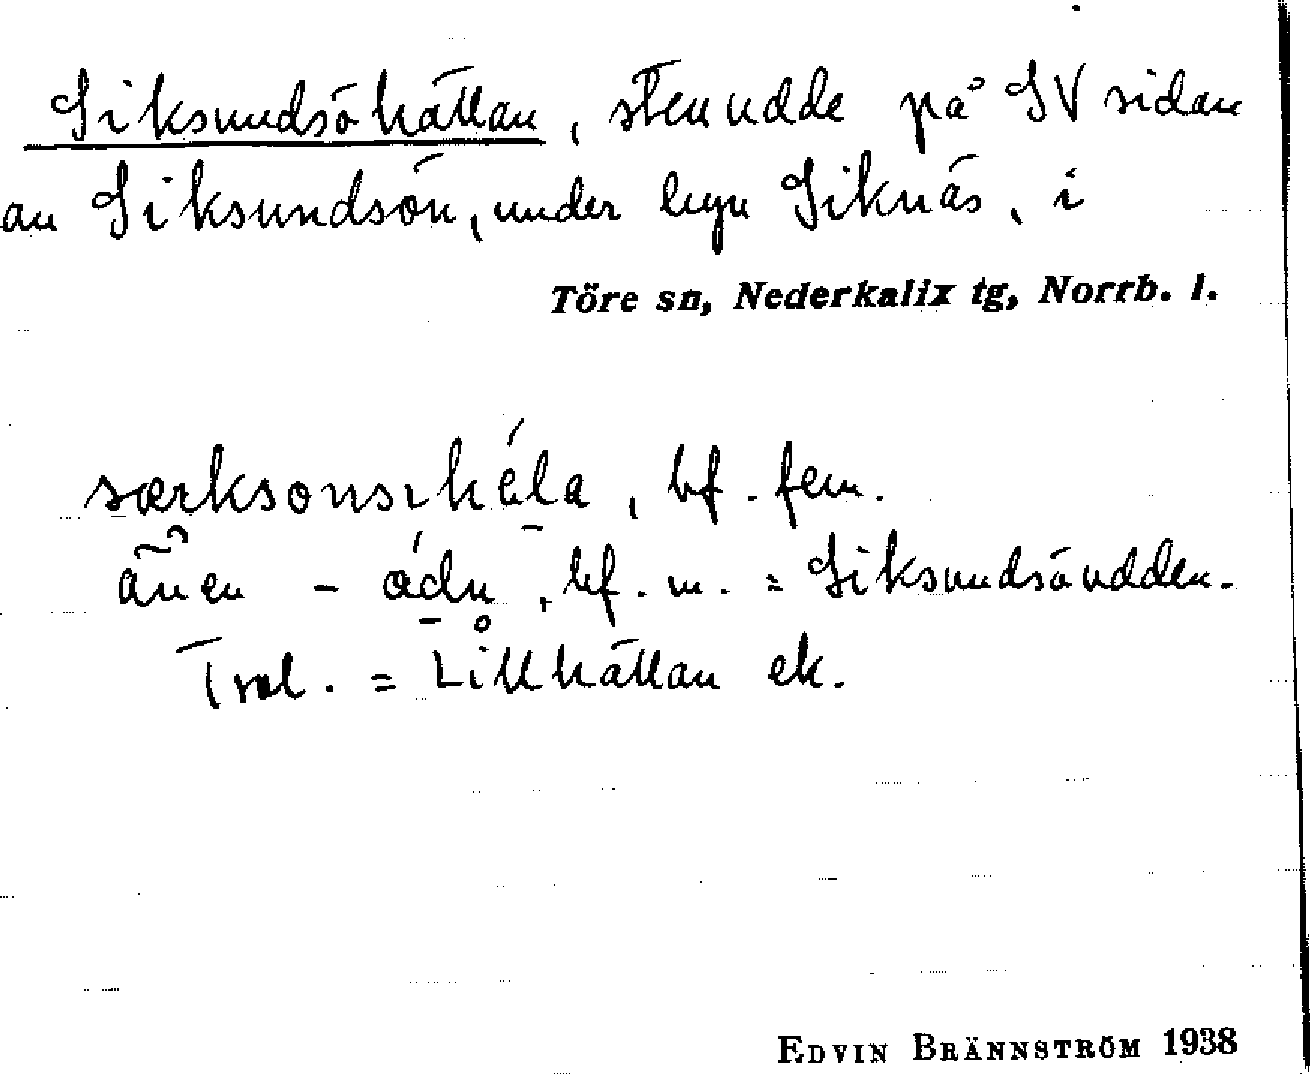 Siksundsöhällan, stenudde på SV sidan
av Siksundsön, under byn Siknäs, i
Töre sn, Nederkalix tg, Norrb. l.
særksonsıhéla, bf. fem.
även - ǽdn, bf. m. = Siksundsöudden.
Trol. = Lillhällan ek.
EDVIN BRÄNNSTRÖM 1938